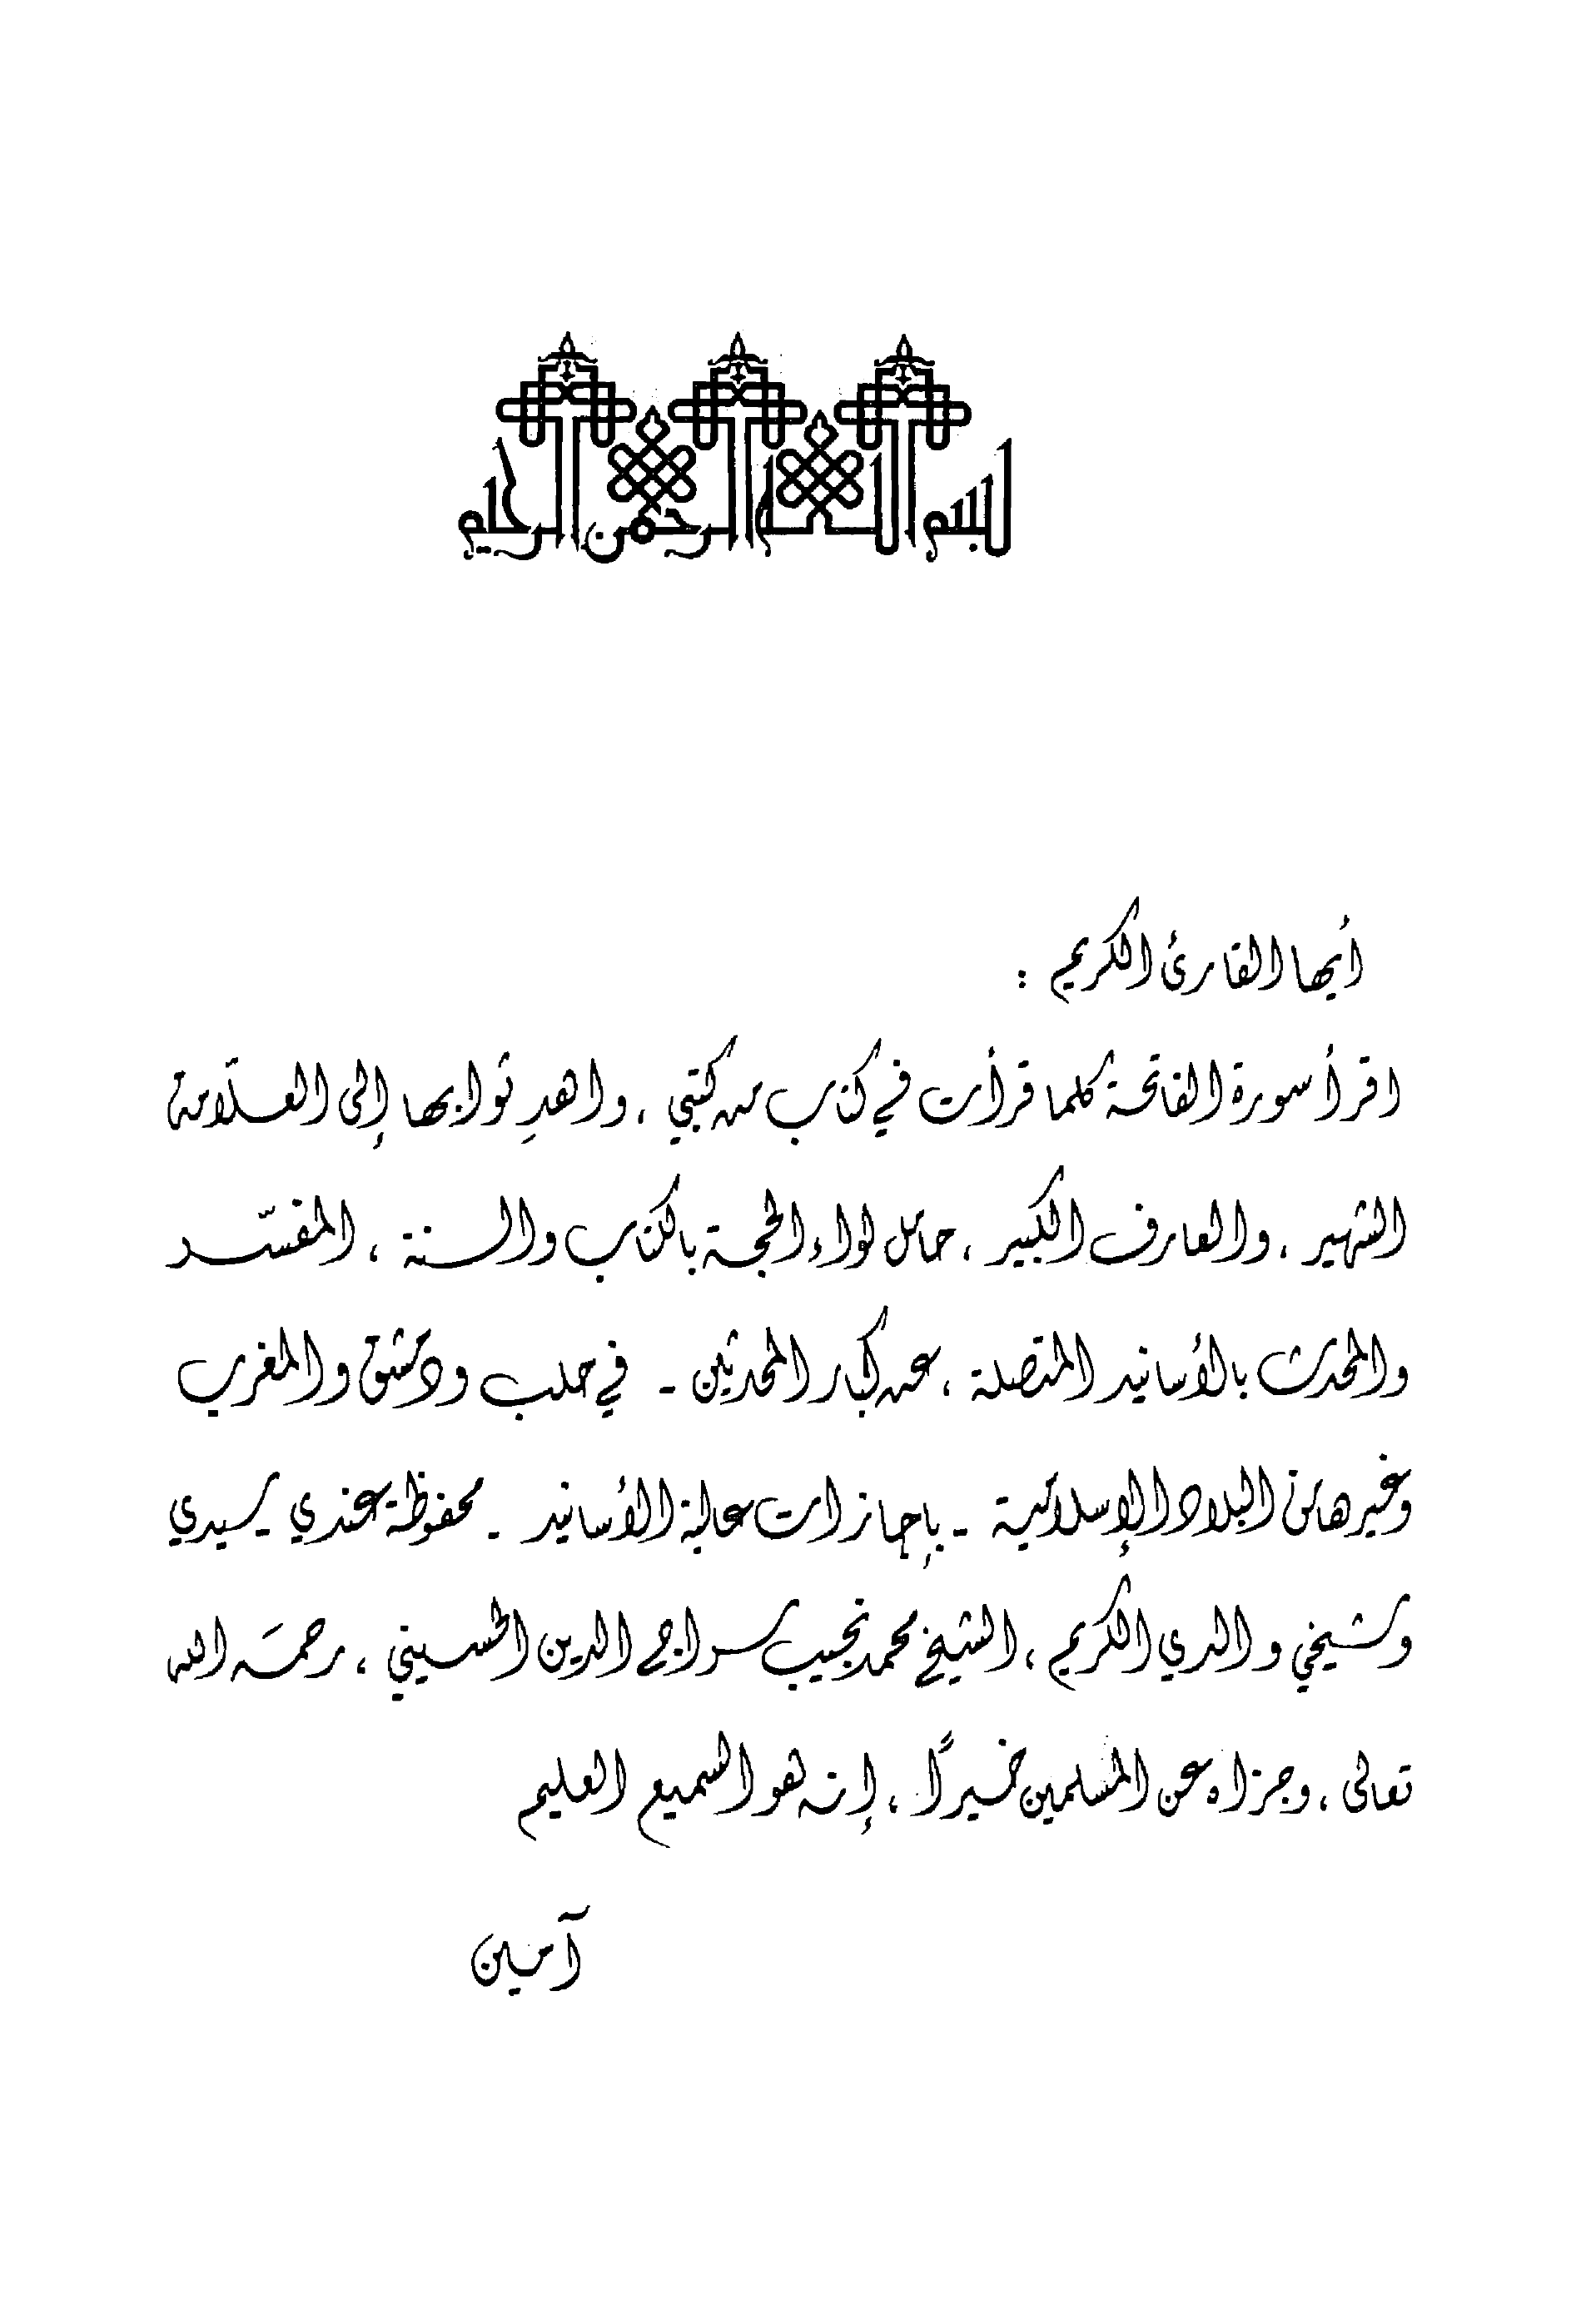 بسم الله الرحمن الرحيم
أيها القارئ الكريم :
اقرأ سورة الفاتحة كلما قرأت في كتاب من كتبي ، واهدِ ثوابها إلى العلّامة
الشهير ، والعارف الكبير ، حامل لواء الحجة بالكتاب والسنة ، المفسّر
والمحدث بالأسانيد المتصلة ، عن كبار المحدثين - في حلب ودمشق والمغرب
وغيرها من البلاد الإسلامية - بإجازات عالية الأسانيد - محفوظة عندي - سيدي
وشيخي والدي الكريم ، الشيخ محمد نجيب سراج الدين الحسيني ، رحمه الله
تعالى ، وجزاه عن المسلمين خيرًا ، إنه هو السميع العليم
آمين